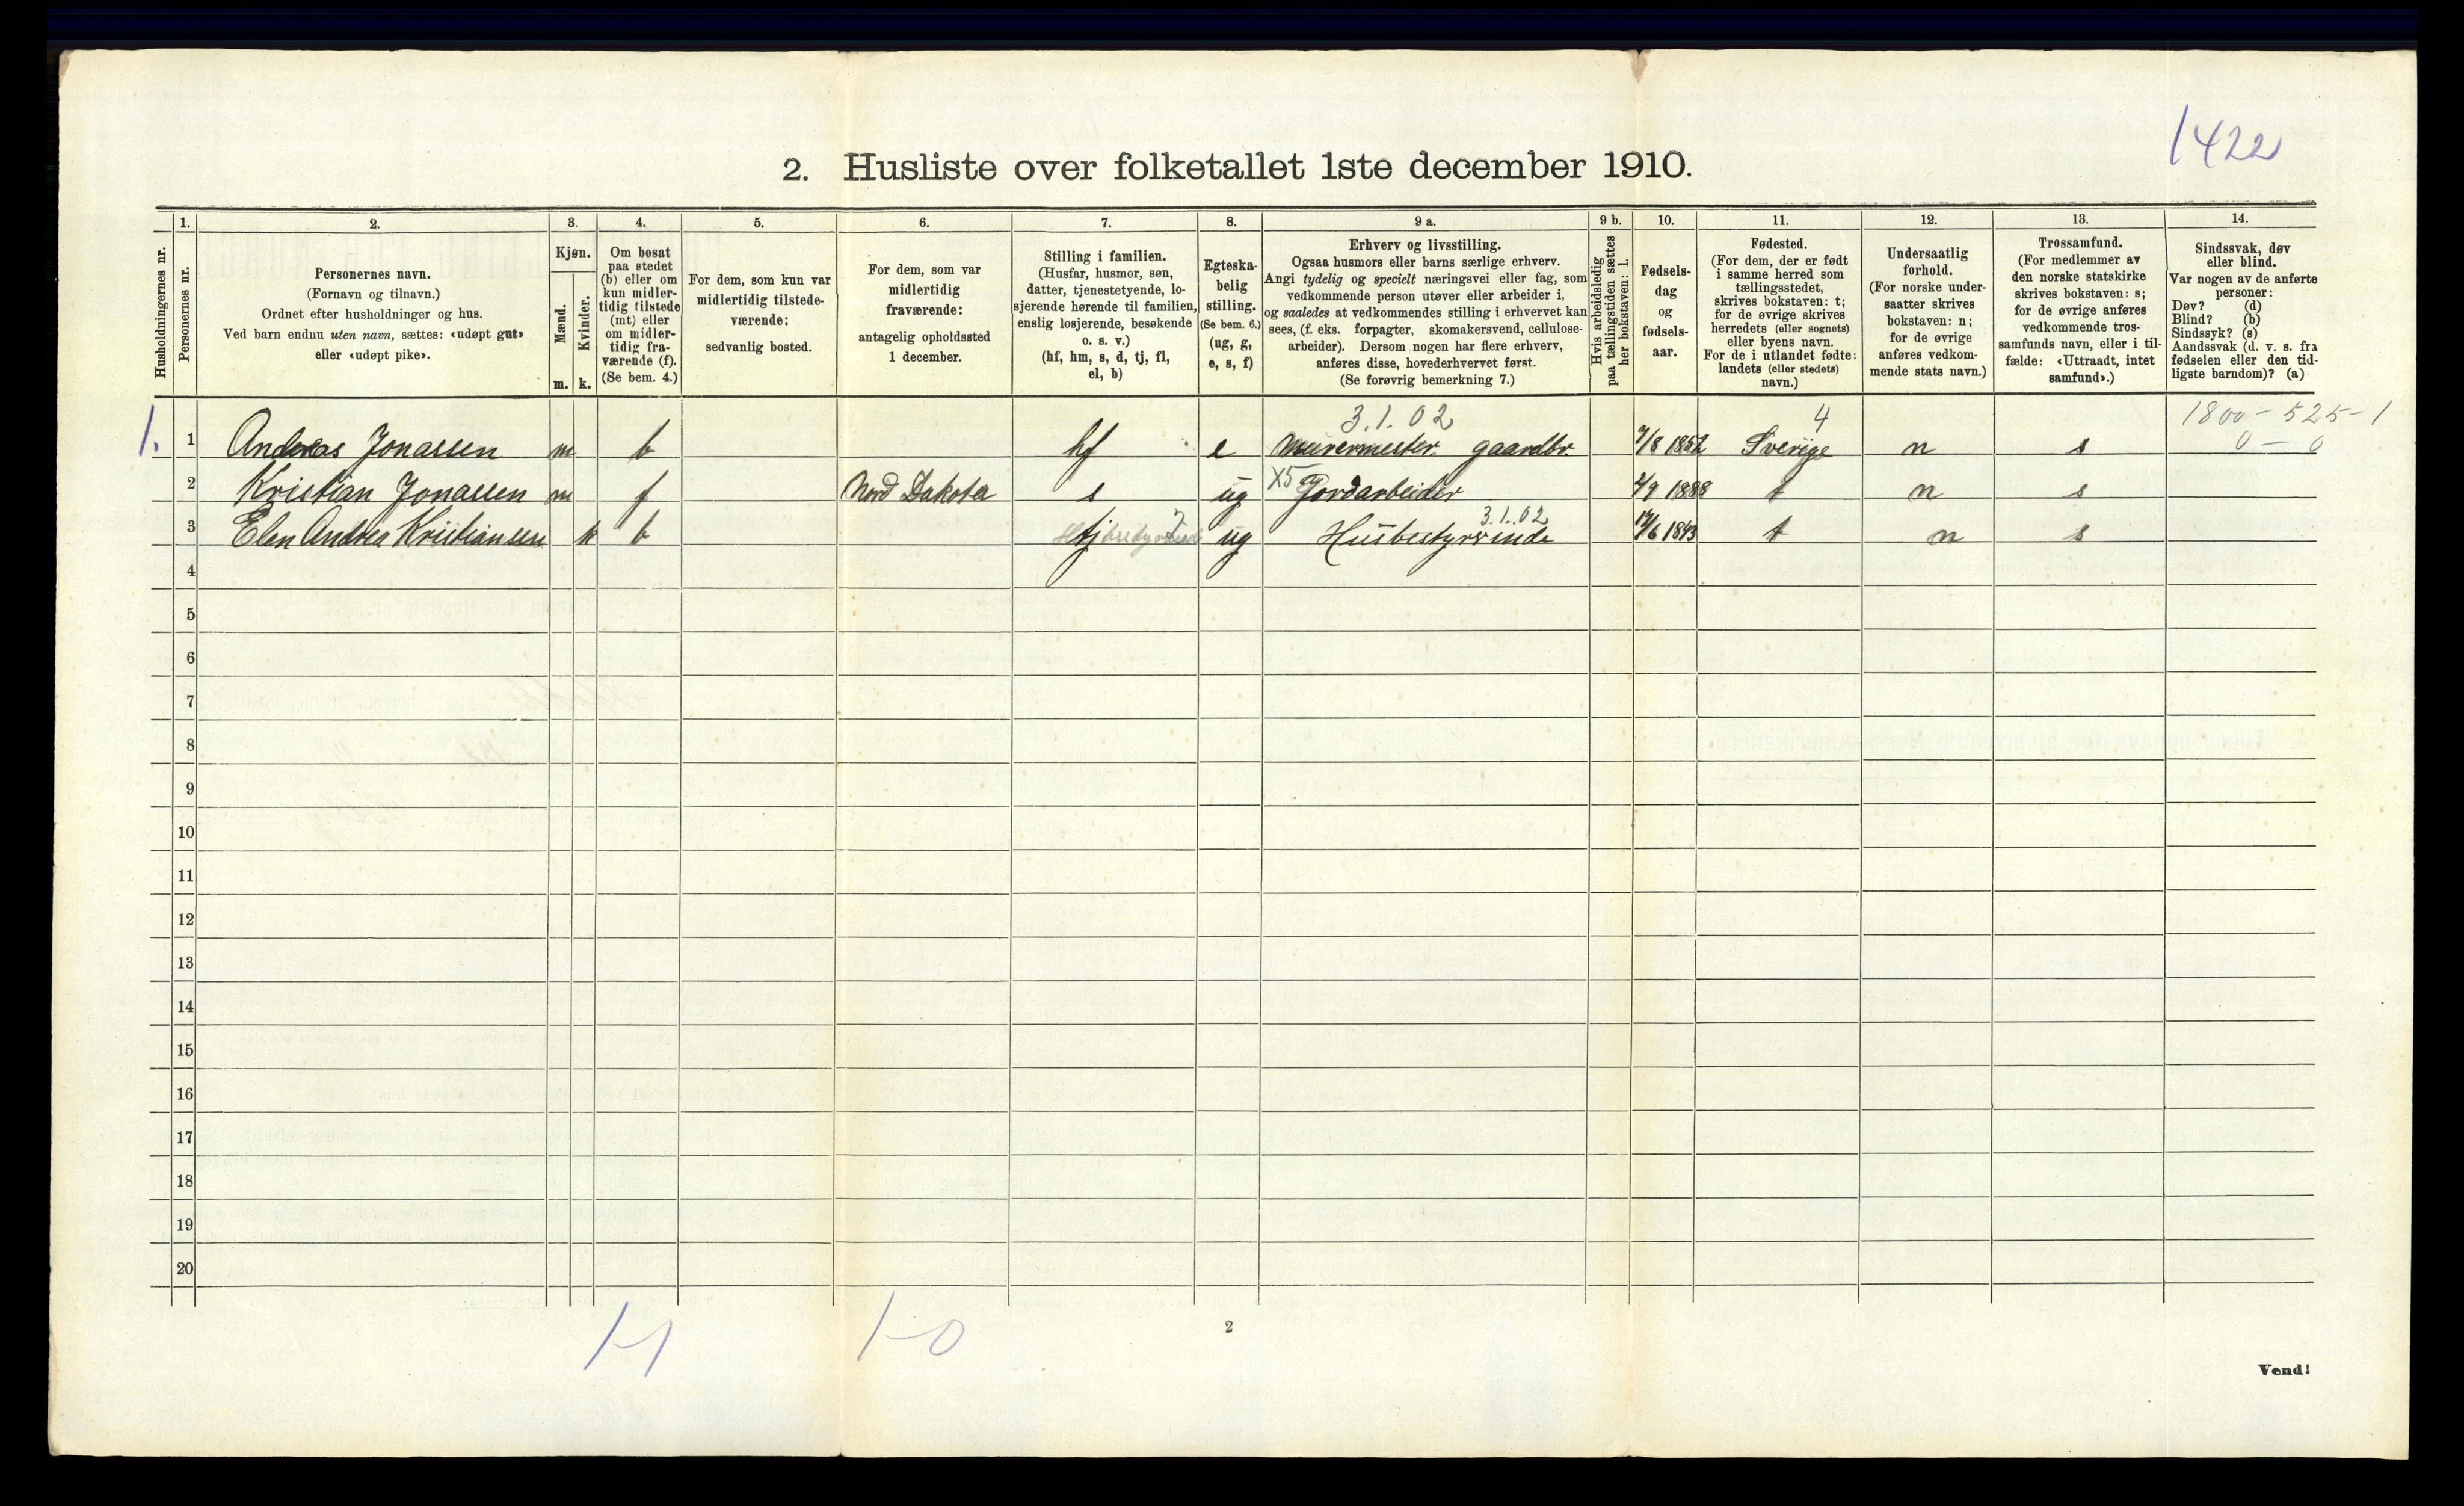 1422
2. Husliste over folketallet 1ste december 1910.
1. 2. 3. 4. 5. 6. 7. 8. 9 a. 9 b. 10. 11. 12. 13. 14.
Husholdningernes nr.
Personernes nr.
Personernes navn.
(Fornavn og tilnavn.)
Ordnet efter husholdninger og hus.
Ved barn endnu uten navn, sættes: «udøpt gut»
eller «udøpt pike».
Kjøn.
Mænd.
Kvinder.
m. k.
Om bosat
paa stedet
(b) eller om
kun midler-
tidig tilstede
(mt) eller
om midler-
tidig fra-
værende (f).
(Se bem. 4.)
For dem, som kun var
midlertidig tilstede-
værende:
sedvanlig bosted.
For dem, som var
midlertidig
fraværende:
antagelig opholdssted
1 december.
Stilling i familien.
(Husfar, husmor, søn,
datter, tjenestetyende, lo-
sjerende hørende til familien,
enslig losjerende, besøkende
o. s. v.)
(hf, hm, s, d, tj, fl,
el, b)
Egteska-
belig
stilling.
(Se bem. 6.)
(ug, g,
e, s, f)
Erhverv og livsstilling.
Ogsaa husmors eller barns særlige erhverv.
Angi tydelig og specielt næringsvei eller fag, som
vedkommende person utøver eller arbeider i,
og saaledes at vedkommendes stilling i erhvervet kan
sees, (f. eks. forpagter, skomakersvend, cellulose-
arbeider). Dersom nogen har flere erhverv,
anføres disse, hovederhvervet først.
(Se forøvrig bemerkning 7.)
Hvis arbeidsledig
paa tællingstiden sættes
her bokstaven: l.
Fødsels-
dag
og
fødsels-
aar.
Fødested.
(For dem, der er født
i samme herred som
tællingsstedet,
skrives bokstaven: t;
for de øvrige skrives
herredets (eller sognets)
eller byens navn.
For de i utlandet fødte:
landets (eller stedets)
navn.)
Undersaatlig
forhold.
(For norske under-
saatter skrives
bokstaven: n;
for de øvrige
anføres vedkom-
mende stats navn.)
Trossamfund.
(For medlemmer av
den norske statskirke
skrives bokstaven: s;
for de øvrige anføres
vedkommende tros-
samfunds navn, eller i til-
fælde: «Uttraadt, intet
samfund».)
Sindssvak, døv
eller blind.
Var nogen av de anførte
personer:
Døv? (d)
Blind? (b)
Sindssyk? (s)
Aandssvak (d. v. s. fra
fødselen eller den tid-
ligste barndom)? (a)
3.1.02 4 1800-525-1
1. 1 Andreas Jonassen m b hf e Murermester gaardbr. 7/8 1852 Sverige n s 0-0
2 Kristian Jonassen m f Nord Dakota s ug X5 Jordarbeider 4/9 1888 t n s
3.1.02
3 Elen Andrea Kristiansen k b tj ug Husbestyrerinde 1843 t n s
4
5
6
7
8
9
10
11
12
13
14
15
16
17
18
19
20
1-1 1-0
2
Vend!